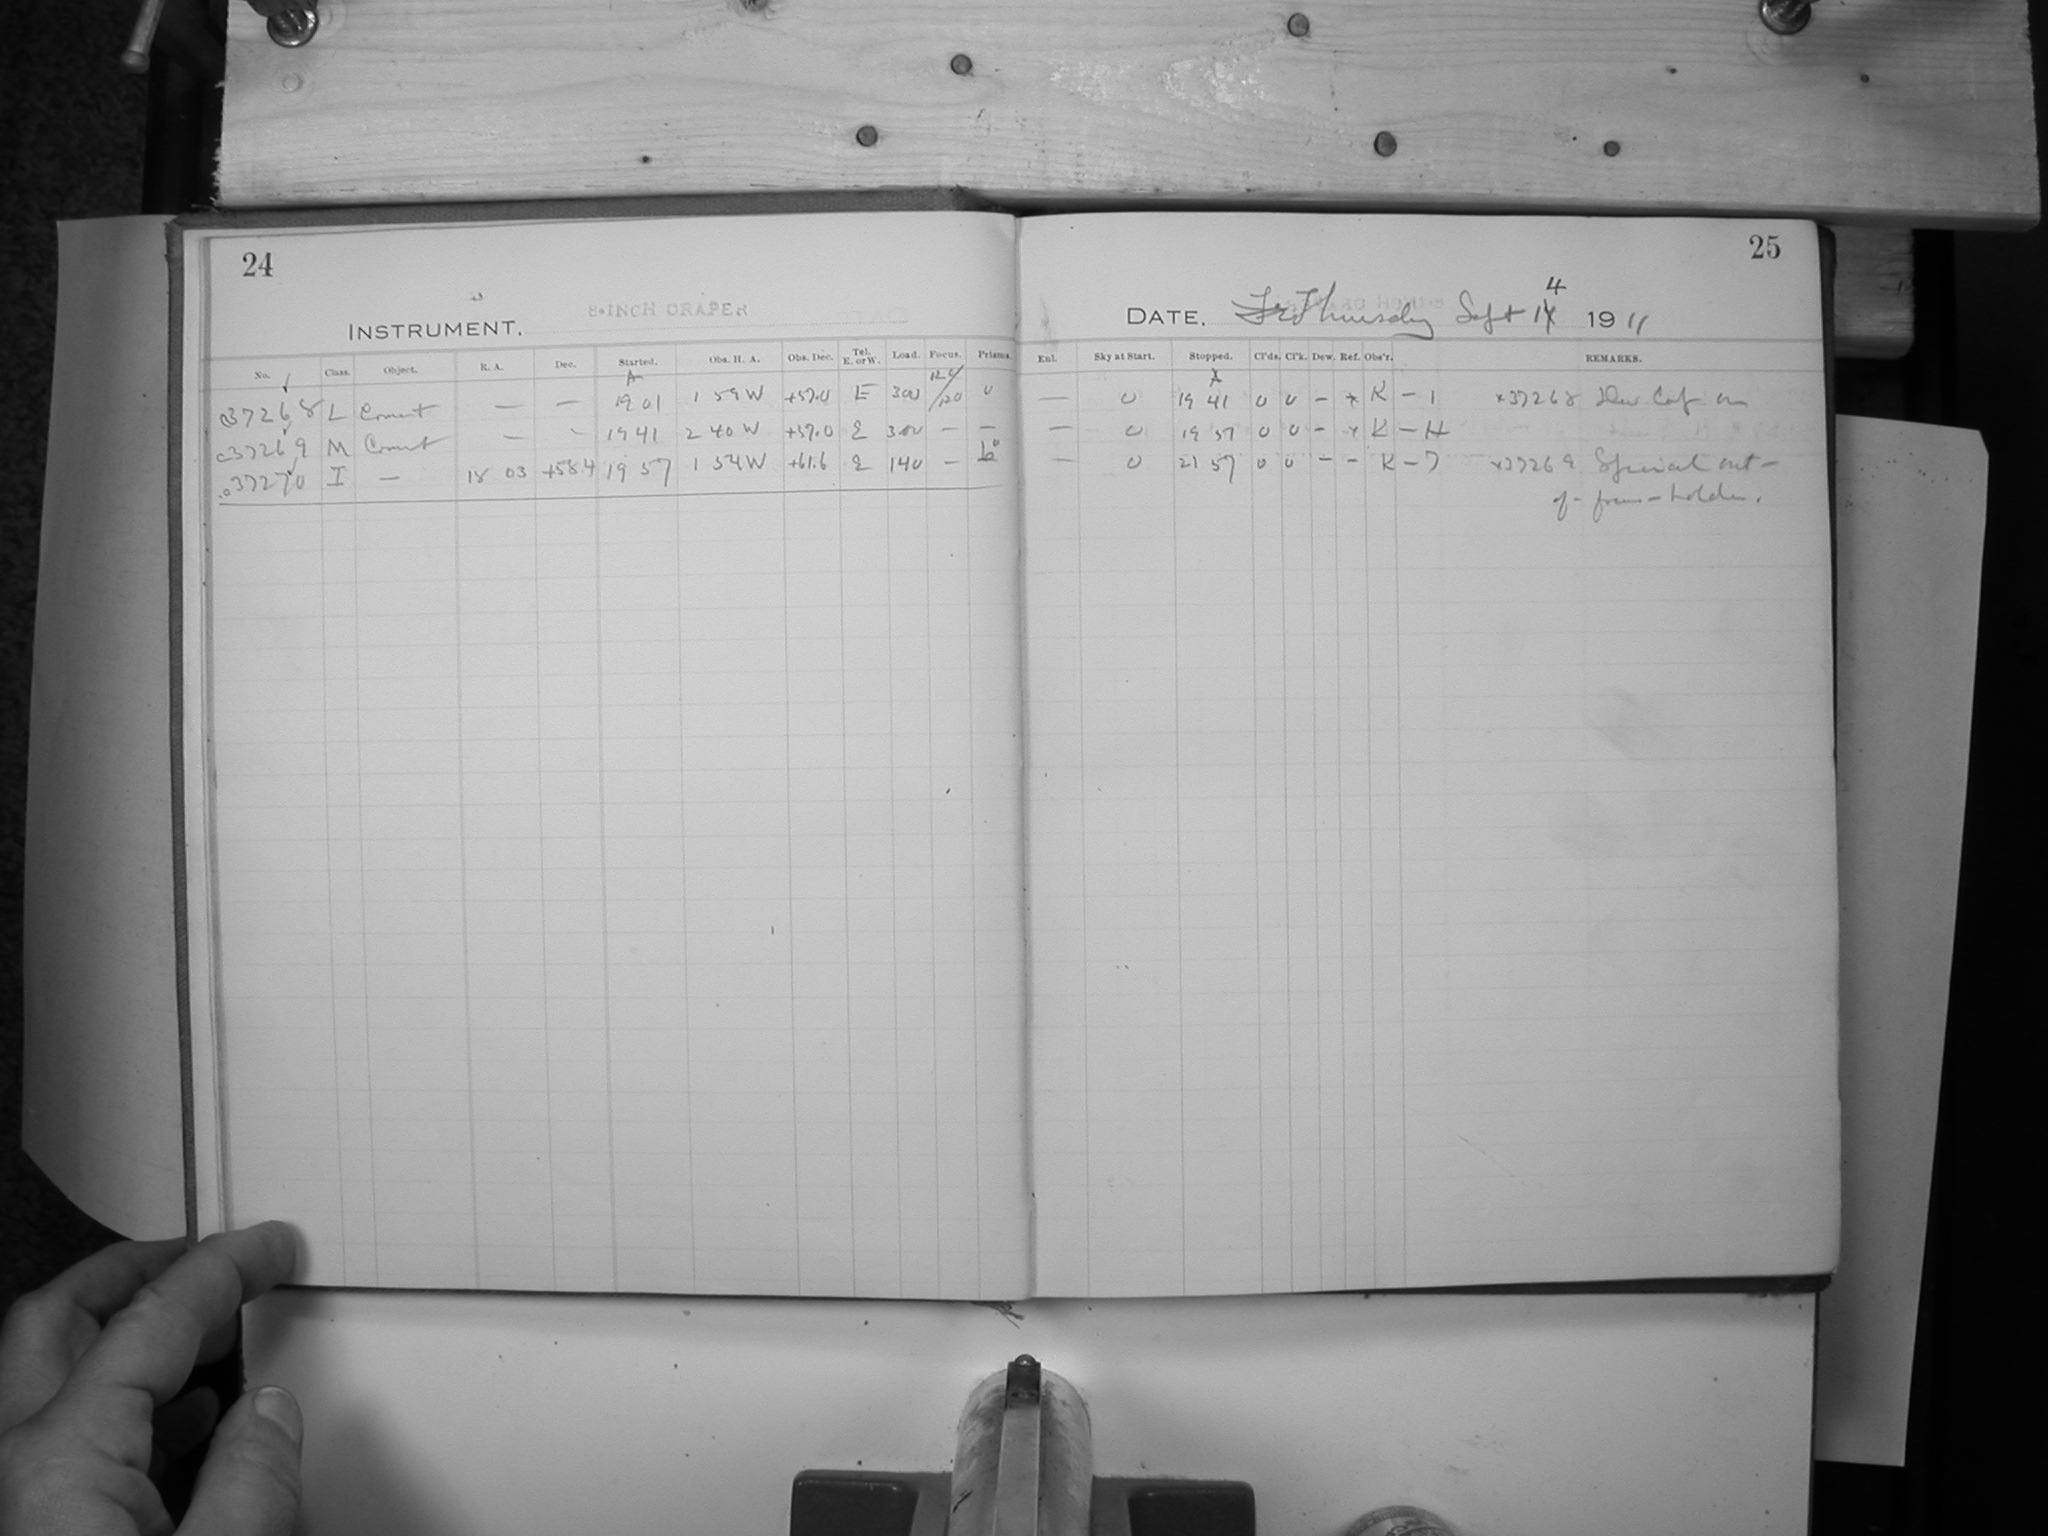 24
INSTRUMENT. 8-INCH DRAPER
No. Class. Object. R. A. Dec. Started. Obs. H. A. Obs. Dec. Tel. E. or W. Load. Focus. Prisms.
37268 L Comet — — 19 01 1 59 W +57.0 E 300 120 0
37269 M Comet — - 19 41 2 40 W +57.0 E 300 — —
37270 I — 18 03 +58.4 19 57 1 54 W +61.6 E 140 —
25
DATE. Thursday Sept 14 1911
Enl. Sky at Start. Stopped. Cl'ds. Cl'k. Dew. Ref. Obs'r. REMARKS.
— 0 19 41 0 0 - x K - 1 x37268 Dew Cap on
— 0 19 57 0 0 - x K - H
— 0 21 57 0 0 - - K - 7 x37269 Special out-
of-focus-holder.